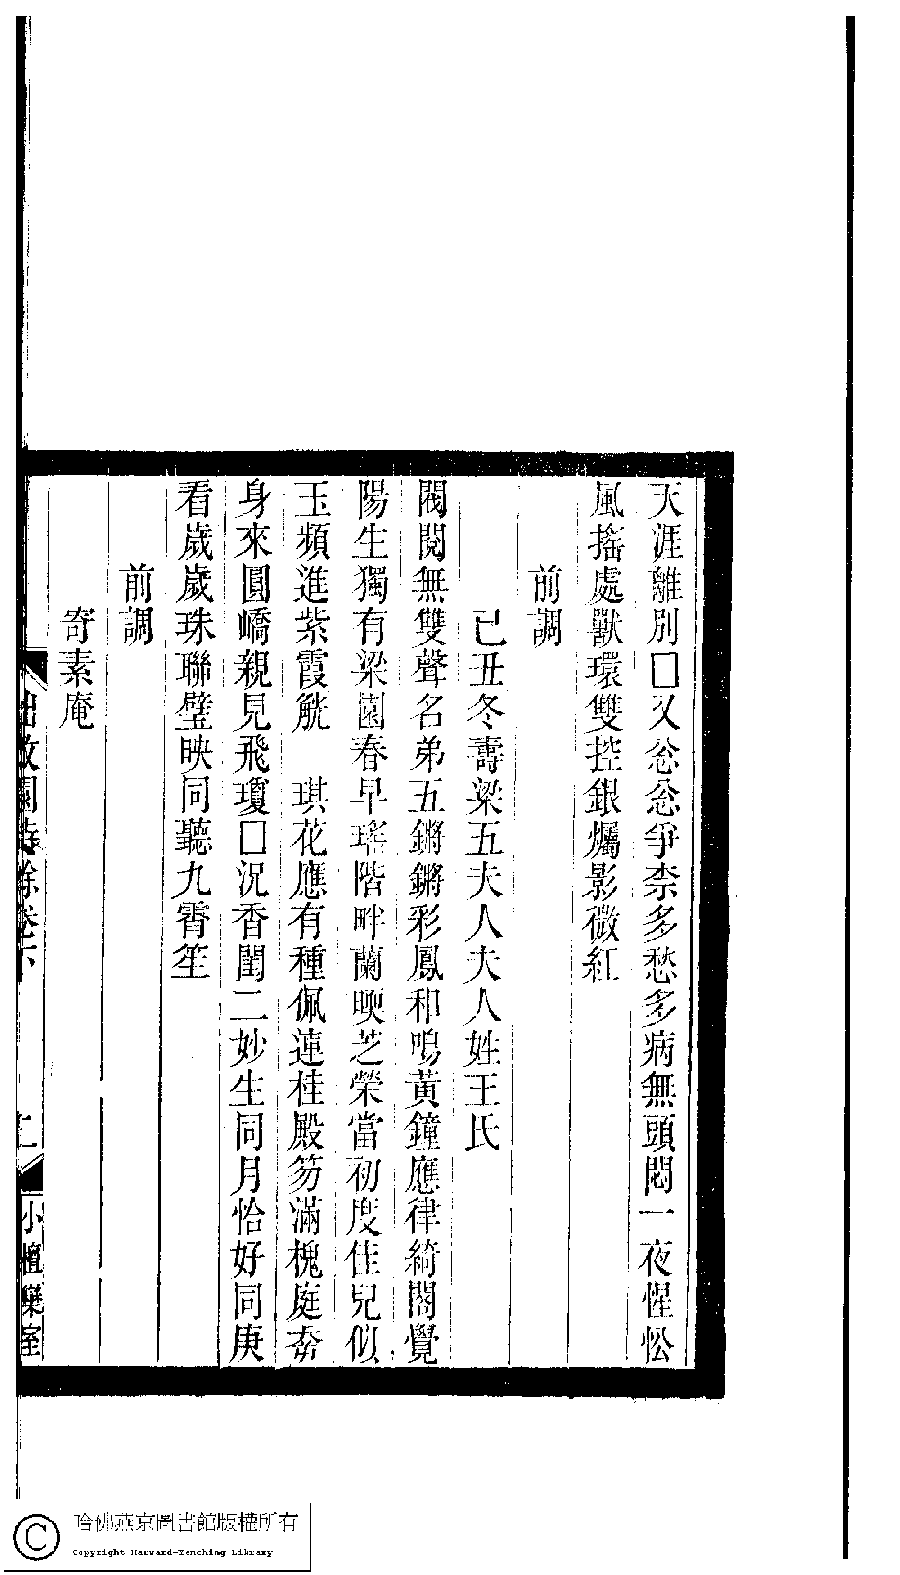 天涯離別□又忩忩爭柰多愁多病無頭悶一夜惺忪
風搖處獸環雙控銀爥影微紅
前調
己丑冬壽梁五夫人夫人姓王氏
閥閱無雙聲名弟五鏘鏘彩鳳和鳴黃鐘應律綺閣覺
陽生獨有梁園春早瑤階畔蘭暎芝榮當初度佳兒似
玉頻進紫霞觥　琪花應有種佩連桂殿笏滿槐庭奔
身來圓嶠親見飛瓊□況香閨二妙生同月恰好同庚
看歲歲珠聯璧映同聽九霄笙
前調
寄素庵
拙政園詩餘卷下
二
小檀欒室
哈佛燕京圖書館版權所有
Copyright Harvard-Yenching Library